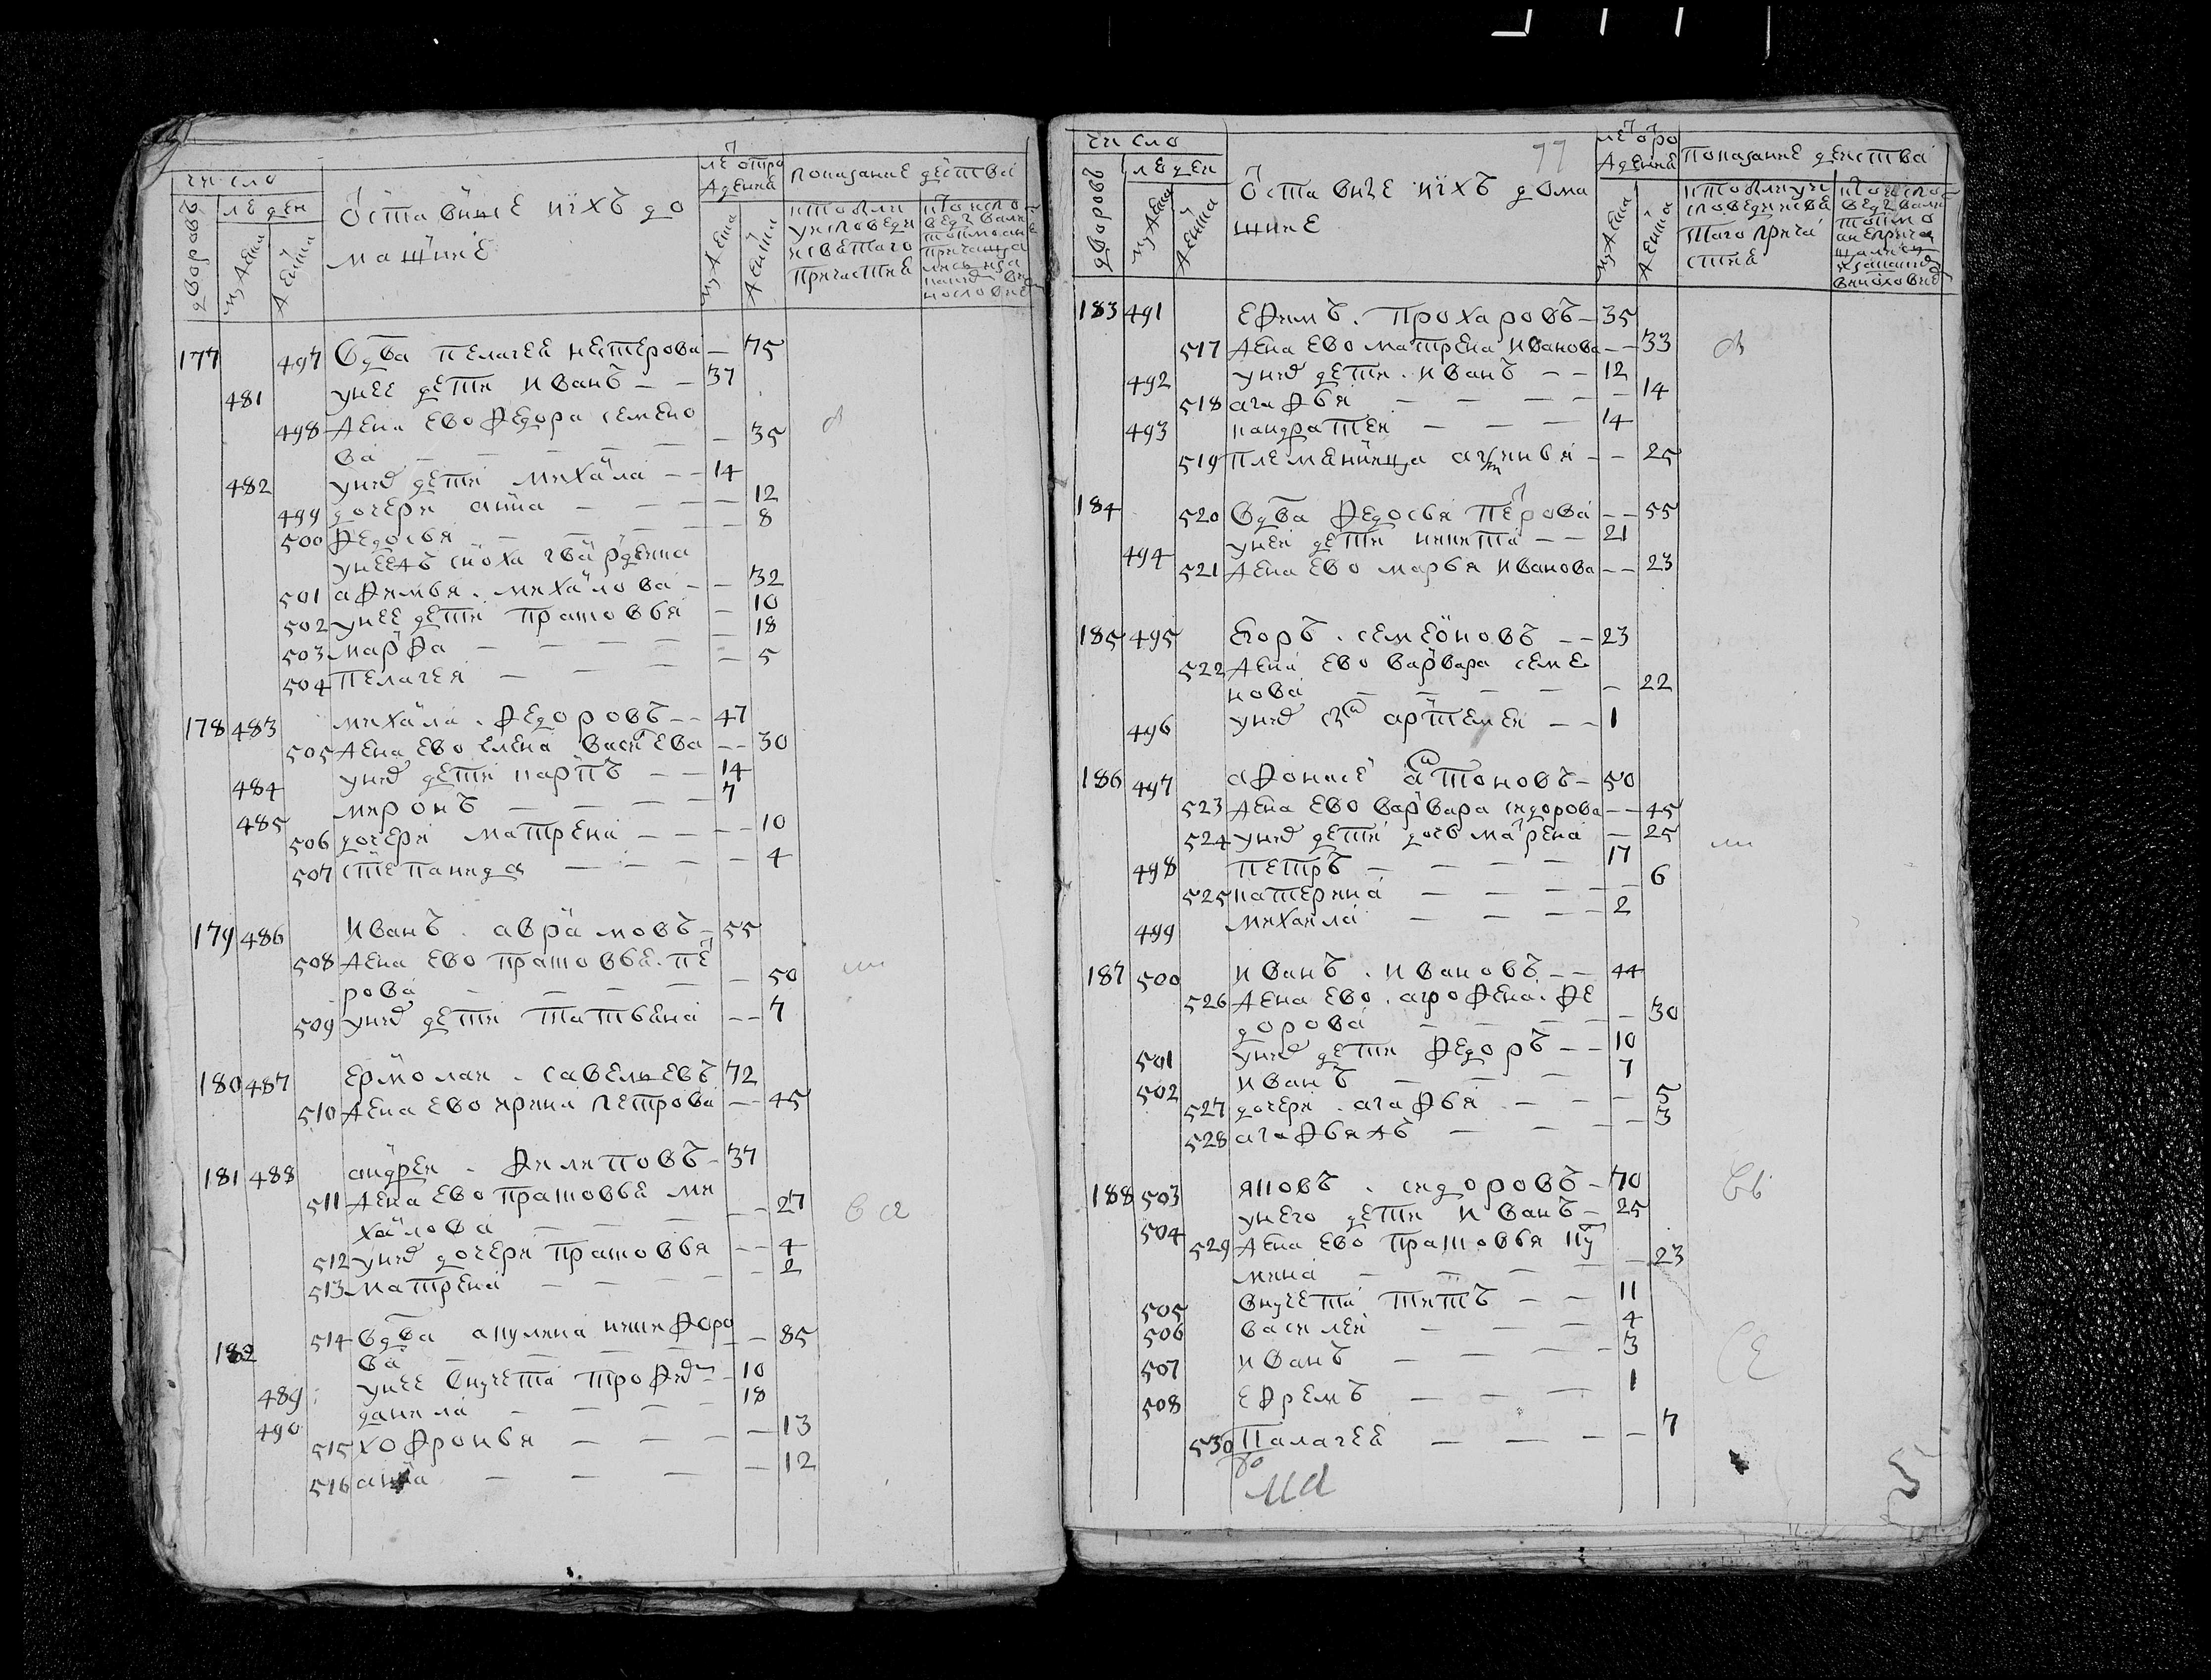 число
людеи
дворовъ
мужеска
женска
Оставшие ихъ до
машние
лет от ро
ждения
мужеска
женска
показание деиства
кто были
у исповеди
и святаго
причастия
177 497 вдва пелагея нестерова — 75
481 у нее дети иванъ — — 37
498 жена ево федора семено
ва — — — — 35
482 у нево дети михаила — — 14
499 дочери анна — — — 12
500 федосья — — — 8
у нее жъ сноха гварденка
501 афимья михалова — — 32
502 у нее дети прасковья — 10
503 марфа — — — 18
504 пелагея — — — 5
178 483 михаила федоровъ — — 47
505 жена ево елена васильева — — 30
484 у нево дети карпъ — — 14
485 миронъ — — — 7
506 дочери матрена — — — 10
507 степанида — — — 4
179 486 иванъ аврамовъ — 55
508 жена ево прасковья пет
рова — — — — 50
509 у нево дети татьяна — — 7
180 487 ермолаи савельевъ 72
510 жена ево ирина петрова — — 45
181 488 андреи филиповъ — 37
511 жена ево прасковья ми
халова — — — 27
512 у нево дочери прасковья — — 4
513 матрена — — — 2
182 514 вдва акулина никифоро
ва — — — — 85
489 у нее внучета трофим — 10
490 данила — — — 18
515 хофронья — — — 13
516 анна — — — 12
77
число
людеи
дворовъ
мужеска
женска
Оставшие ихъ дома
шние
лет от ро
ждения
мужеска
женска
показание деиства
183 491 ефимъ прохаровъ — 35
517 жена ево матрена иванова — — 33
492 у нево дети иванъ — — 12
518 агафья — — — — 14
493 кандратеи — — — 14
519 племяница аксинья — — 25
184 520 вдва федосья петрова — — 55
494 у неи дети никита — — 21
521 жена ево марья иванова — — 23
185 495 егоръ семеновъ — — 23
522 жена ево варвара семе
нова — — — — 22
496 у нево сынъ артемеи — — 1
186 497 афонасе антоновъ — 50
523 жена ево варвара сидорова — — 45
524 у нево дети дочь матрена — 25
498 петръ — — — — 17
525 катерина — — — 6
499 михаила — — — 2
187 500 иванъ ивановъ — — 44
526 жена ево агрофена фе
дорова — — — — 30
501 у нево дети федоръ — — 10
502 иванъ — — — 7
527 дочери агафья — — 5
528 агафья жъ — — — 3
188 503 яковъ сидоровъ — 70
504 у него дети иванъ — 25
529 жена ево прасковья ку
мина — — — — 23
505 внучета титъ — — 11
506 василеи — — — 4
507 иванъ — — — 3
508 ефремъ — — — 1
530 палагея — — — 7